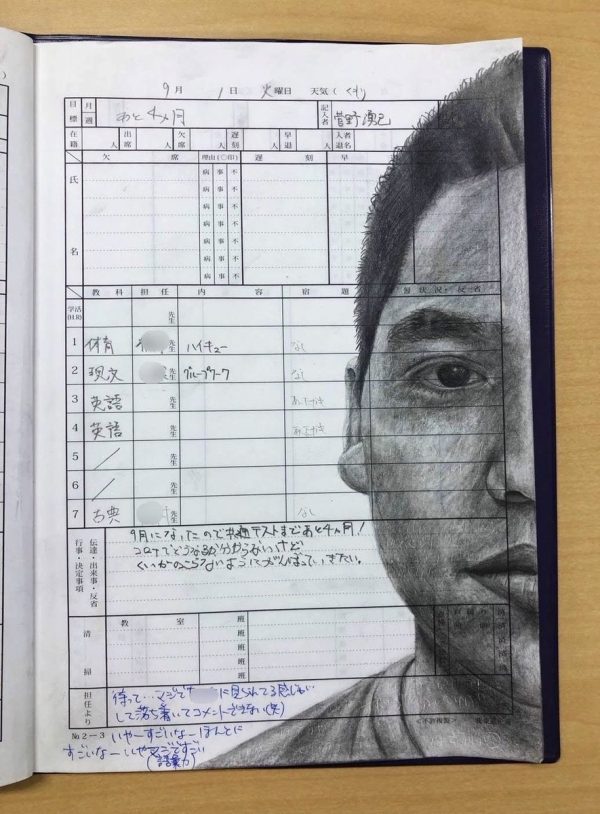 9月 1日 火曜日 天気( くもり )
目標 月 週 あと4ヵ月 記入者 菅野湧己
在籍 人 出席 人 欠席 人 遅刻 人 早退 人 入者名 退名
欠席 理由(○印) 遅刻 早
氏名
病 事 不
病 事 不
病 事 不
病 事 不
病 事 不
病 事 不
教科 担任 内容 宿題 状況・反省
学活(H.R) 先生
1 体育 先生 ハイキュー なし
2 現文 先生 グループワーク なし
3 英語 先生
4 英語 先生
5 / 先生
6 / 先生
7 古典 先生 なし
伝達・出来事・反省
行事・決定事項
9月になったので共通テストまであと4ヵ月!
コロナでどうなるか分からないけど
くいがのこらないようにがんばっていきたい。
清掃 教室 班
班
班
班
担任より
待って…マジで に見られてる感じが
して落ち着いてコメントできない(笑)
いやーすごいなーほんとに
すごいなーいやマジですごい
(語彙力)
No.2-3
<不許複製>